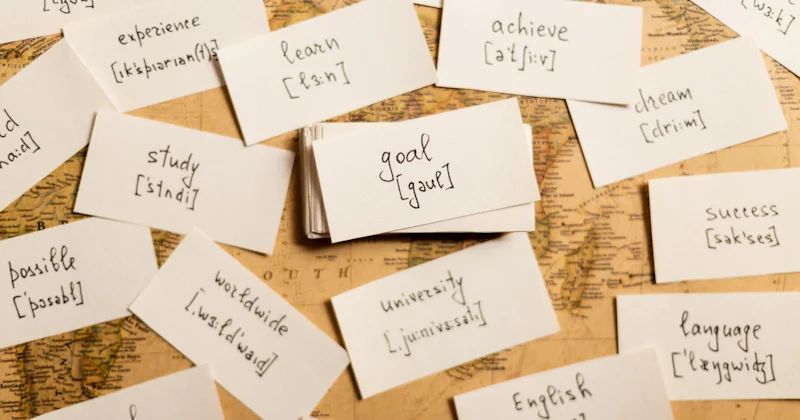 experience
[ɪk'spɪərɪən(t)s]
learn
[lɜ:n]
achieve
[ə'tʃi:v]
dream
[dri:m]
study
['stʌdi]
goal
[gəul]
success
[sək'ses]
possible
['pɔsəbl]
worldwide
[ˌwɜ:ld'waɪd]
university
[ˌju:nɪvɜ:sətɪ]
language
['læŋgwɪdʒ]
English